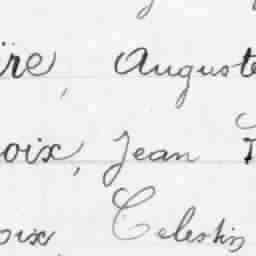 ire, Auguste
oix, Jean
oix Celestin